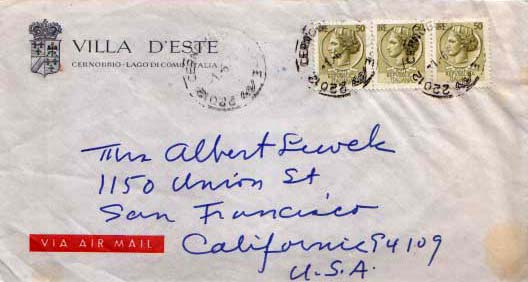 VILLA D'ESTE
CERNOBBIO - LAGO DI COMO - ITALIA
50
50
50
22012
22012
22012
Mrs Albert
1150 Union St
San Francisco
California 94109
U.S.A.
VIA AIR MAIL